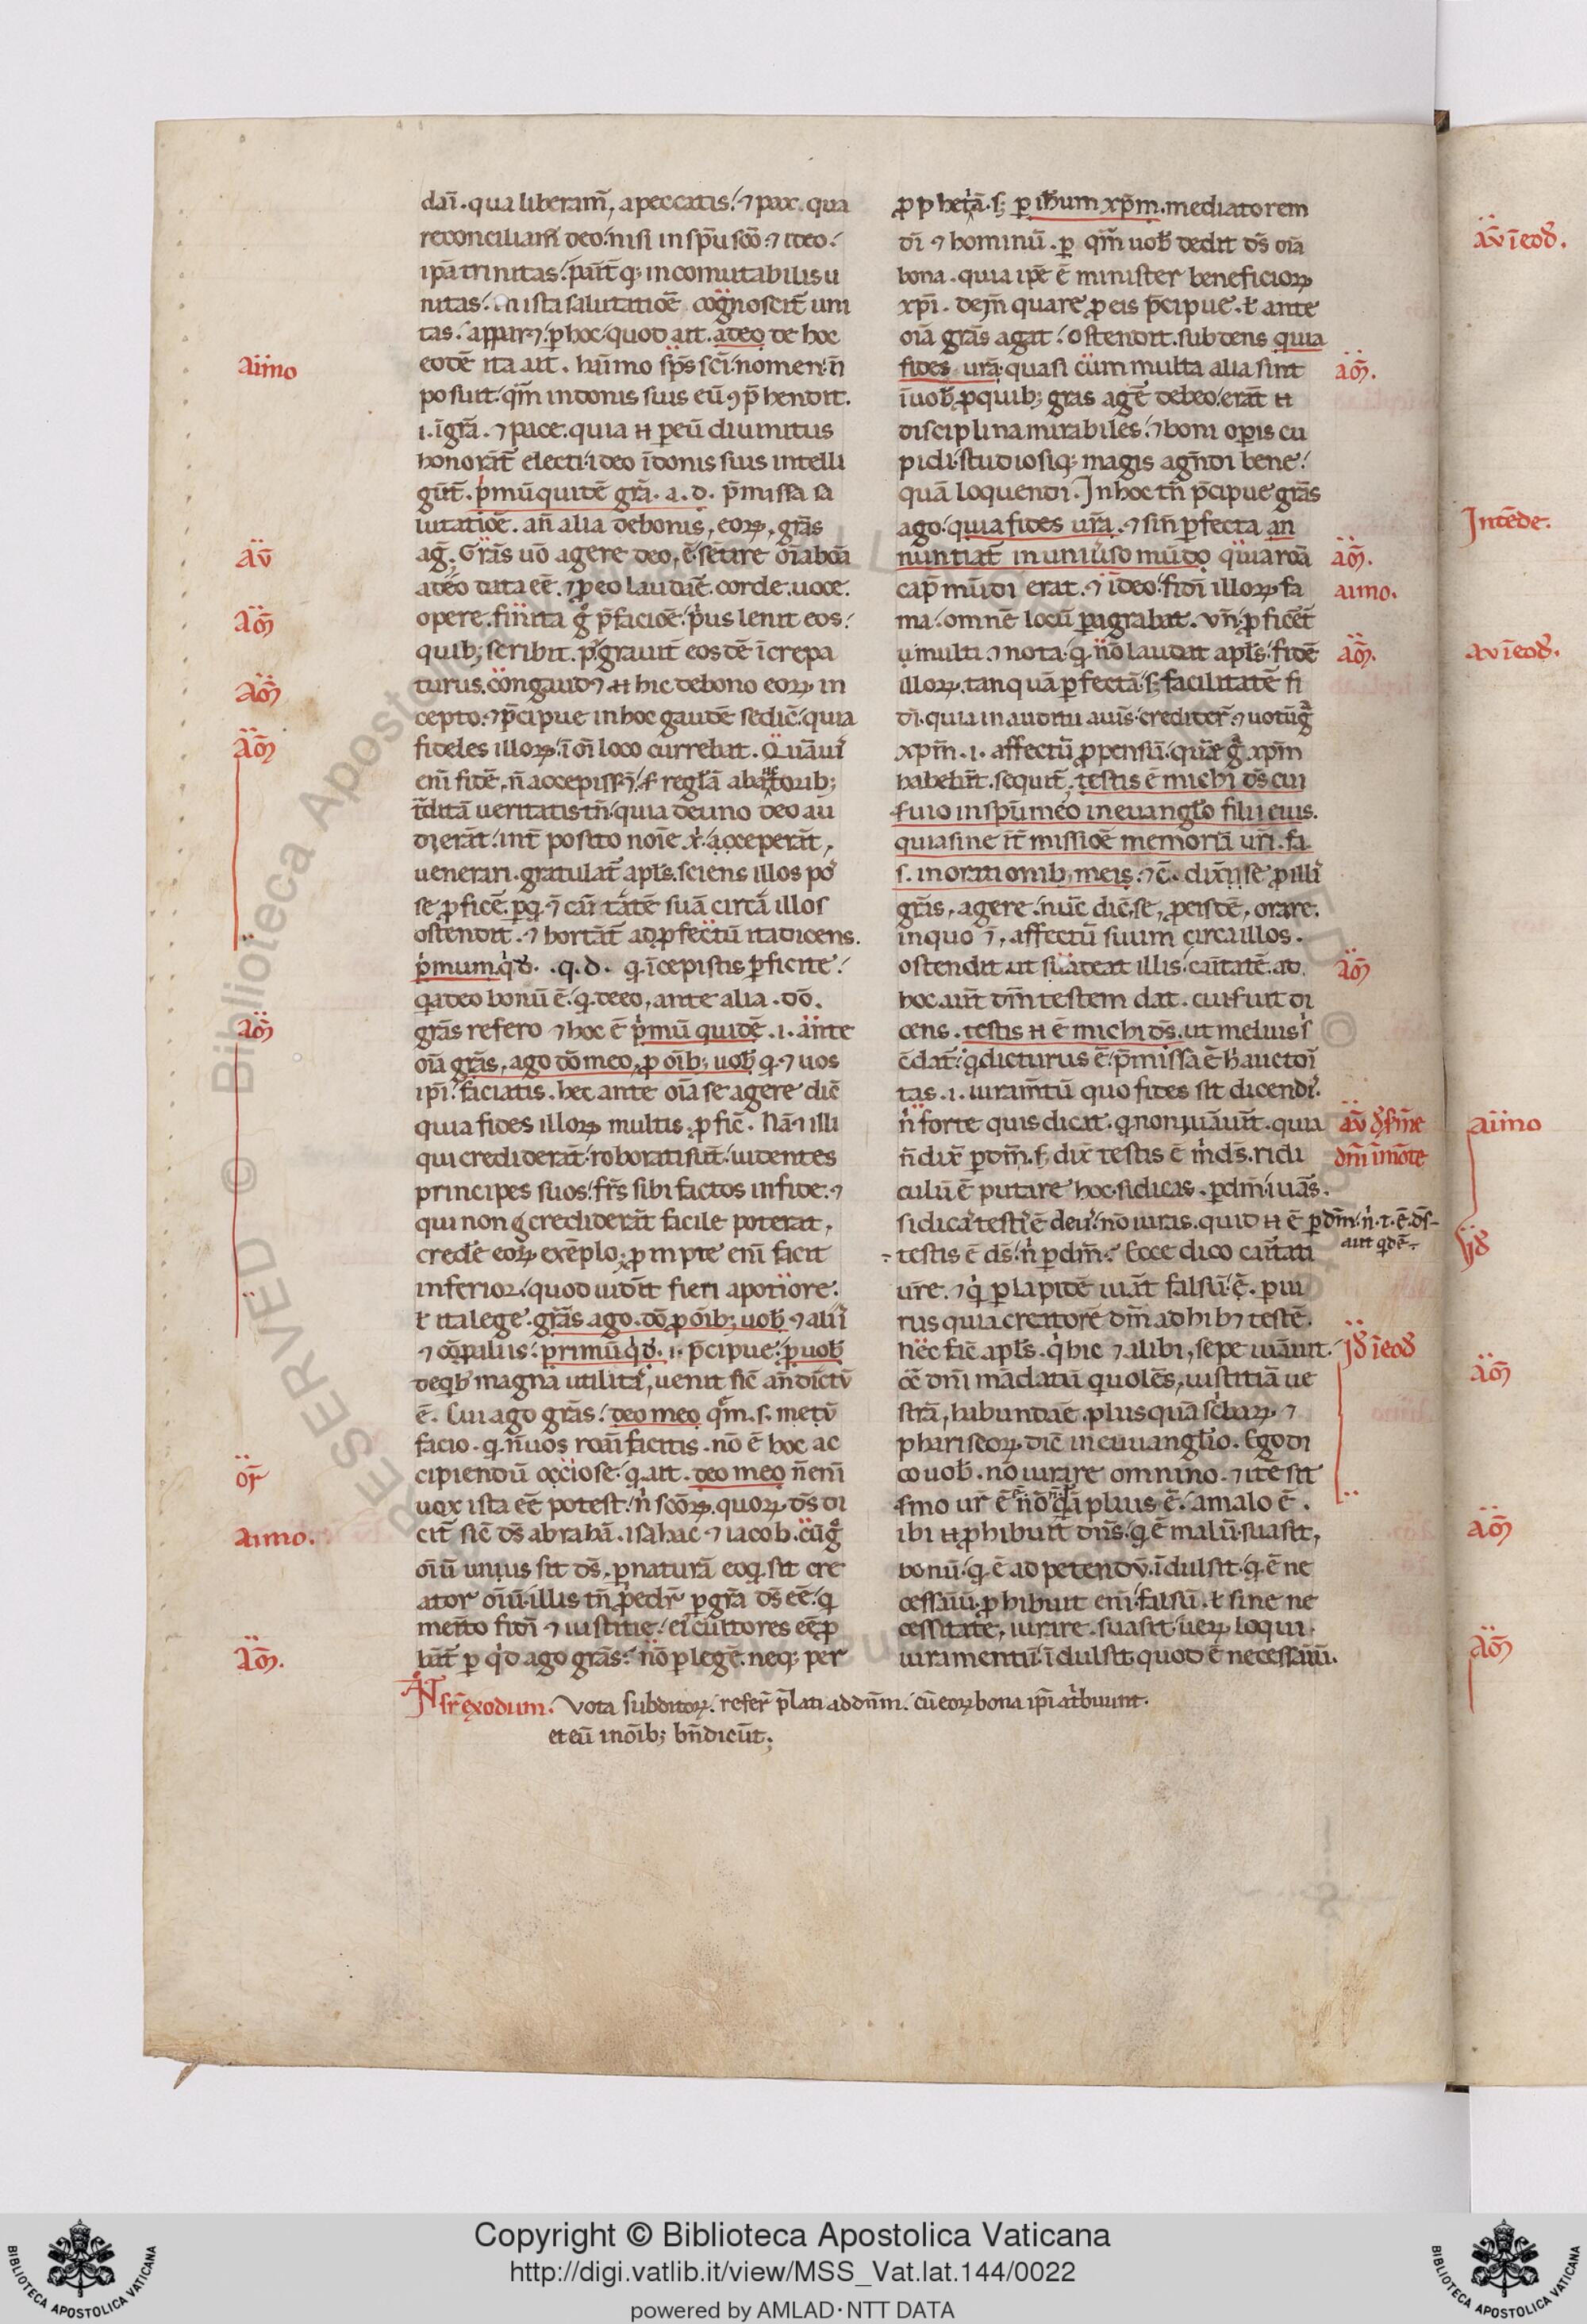 daī. qua liberam̄, a peccatis. ⁊ pax. qua
reconciliam̄ deo. nisi in sp̄u sc̄o. ⁊ ideo.
ip̄a trinitas. parit̄q; incomutabilis u
nitas. in ista salutatiōe cognoscit̄ uni
tas. apparꝫ. ꝑ hoc quod ait. a deo de hoc
aimo
eodē ita ait. huīmo sp̄s sc̄i nomen n̄
posuit. qm̄ in donis suis eū ꝯp̄hendit.
.i. ī gr̄a. ⁊ pace. quia ⁊ ꝑ eū diuinitus
honorāt̄ electi. ideo ī donis suis intelli
gūt̄. p̄mū quidē gr̄a. a. d. p̄missa sa
lutatiōe. an̄ alia de bonis, eoꝝ, gr̄as
av̄
aḡ. Gr̄as uō agere deo, ē sētire oīa bōa
a deo data eē. ⁊ ꝓ eo laudaē. corde. uoce.
am̄
opere. finita g̊ p̄faciōe. p̄us lenit eos.
quib; scribit. p̄grauit eos dē īcrepa
am̄
turus. congaudꝫ ⁊ hic de bono eoꝝ in
cepto. ⁊ p̄cipue in hoc gaudē se dic̄. quia
am̄
fideles illoꝝ. ī oī loco currebat. Quāui
eni fidē, n̄ accepiss̄ꝫ f reglā ab actorib;
t̄ditā ueritatis tn̄. quia de uno deo au
dierāt. int̄ posito noīe x̄. acceperāt,
uenerari. gratulat̄ apls. sciens illos po
se ꝓficē. ꝑq̄ ⁊ caritatē suā circa illos
ostendit. ⁊ hortāt̄ ad ꝓfectū ita dicens.
p̄mum q̄d. .q.d. q̄ īcepistis ꝑficite.
q̄ adeo bonū ē. q̄ deeo, ante alia. dō.
am̄
gr̄as refero ⁊ hoc ē p̄mū quidē. .i. ante
oīa gr̄as, ago dō meo, ꝓ oīb; uob̄ q̄ ⁊ uos
ip̄i. faciatis. hec ante oīa se agere dic̄
quia fides illoꝝ multis, ꝓfic̄. Nā ⁊ illi
qui crediderāt. roborati sūt. uidentes
principes suos. frs̄ sibi factos in fide. ⁊
qui non crediderāt facile poterat,
crede eoꝝ exēplo. ꝓmpte enī facit
inferior. quod uidit̄ fieri a potiore.
ł ita lege. gr̄as ago. dō ꝓ oīb; uob̄ ⁊ alii
⁊ ꝯpaliis. primū q̄d. .i. p̄cipue. ꝓ uob̄
de qb̄ magna utilitas, uenit sic̄ an̄ dictū
ē. Cui ago gr̄as. deo meo qm̄. s. metū
facio. q̄ n̄ uos roāi facitis. nō ē hoc ac
or̄
cipiendū occiose. q̄ ait. deo meo n̄ enī
uox ista eē potest. n̄ scōꝝ, quoꝝ ds̄ di
aimo.
cit̄ sic̄ ds̄ abrahā. isahac ⁊ iacob. cū g̊
oīū unius sit ds̄, ꝑ naturā eoq̄ sit cre
ator oīū illis tn̄ p̄edr̄ ꝑ gr̄a ds̄ eē. q̄
merito fidi ⁊ iustitie. ei cultores eē ꝓ
am̄.
bāt̄ ꝑ q̄d ago gr̄as. nō ꝑ legē. neq; per
ꝓphetā. s; ꝑ ih̄um xp̄m. mediatorem
dī ⁊ hominū. ꝑ qm̄ uob̄ dedit ds̄ oīa
bona. quia ip̄e ē minister beneficioꝝ
xp̄i. dein̄ quare ꝓ eis p̄cipue. ł ante
oīa gr̄as agat. ostendit. subdens quia
fides ur̄a. quasi cum multa alia sint
am̄.
ī uob̄. ꝓ quib; gras agē debeo. erāt ⁊
disciplina mirabiles. ⁊ boni oꝑis cu
pidi. studiosiq; magis agēdi bene.
quā loquendi. In hoc tn̄ p̄cipue gr̄as
ago. quia fides ur̄a. ⁊ sin̄ ꝑfecta an
nuntiat̄ in uniuso mūdo quia roā
am̄.
cap̄ mūdi erat. ⁊ ideo. fidi illoꝝ fa
aimo.
ma. omnē locū ꝑagrabat. Vn̄. ꝓficēt
u multi. ⁊ nota. q̄ nō laudat apls. fidē
am̄.
illoꝝ. tanquā ꝑfectā. s; facilitatē fi
di. quia in auditu auis. crediter̄. ⁊ uotū g̊
xp̄m. .i. affectū ꝓpensiū. quē g̊ xp̄m
habebūt. sequit̄. testis ē michi ds̄ cui
fuio in sp̄u meo in euanglo filii eius.
quia sine īt̄missiōe memoriā ur̄i. fa
s. in orationib; meis. ⁊c̄. dixit se ꝓ illi
gr̄as, agere. nūc dic̄, se, ꝓ eisdē, orare.
in quo ⁊, affectū suum circa illos.
ostendit ut suadeat illis. caritatē. ad
am̄
hoc aut̄ dm̄ testem dat. cui fuit di
cens. testis ⁊ ē michi ds̄. ut melius s
c̄dat̄. q̄ dicturus ē. p̄missa ē h̄ auctori
tas. .i. iuram̄tū quo fides sit dicendi.
n̄ forte quis dicat. q̄ non iuauit. quia
n̄ dix̄ ꝑ dm̄. s; dix̄ testis ē m̄ ds̄. ridi
dm̄ ī mōte
culū ē putare hoc. si dicas. ꝑ dm̄. iuas.
si dicas testis ē deus. nō iuras. quid ⁊ ē ꝑ dm̄. n̄. t. ē. ds̄
testis ē ds̄. n̄ ꝑ dm̄. Ecce dico caritati
ur̄e. ⁊ q̄ ꝑ lapidē iuat falsū. ē. ꝑiu
rus quia creatorē dm̄ adhibꝫ testē.
nec̄ sic̄ apls. q̄ hic ⁊ alibi, sepe iuauit.
ōē dm̄i mādatū quo lēs, iustitiā ue
strā, habundāe. plus quā scbaꝝ, ⁊
phariseoꝝ. dic̄ in euuangl̄io. Ego di
co uob̄. nō iurare omnino. ⁊ itē sit
smo ur̄ ē ē nō nō q̄ā plius ē. a malo ē.
ibi ⁊ ꝓhibuit dn̄s. q̄ ē malū. suasit,
bonū. q̄ ē ad petendū. īdulsit. q̄ ē ne
cessariū. ꝓhibuit enī. falsū. ł sine ne
cessitate, iurare. suasit. ueꝝ loqui.
iuramentū. īdulsit. quod ē necessariū.
sr̄ exodum. Vota subditoꝝ. refer̄ p̄lati ad dn̄m. cū eoꝝ bona ip̄i at̄buunt.
et eū in oīb; bn̄dicūt;
av̄ ī eod̄.
Intēde.
av ī eod̄.
aimo
am̄
am̄
am̄
Copyright © Biblioteca Apostolica Vaticana
http://digi.vatlib.it/view/MSS_Vat.lat.144/0022
powered by AMLAD·NTT DATA
BIBLIOTECA APOSTOLICA VATICANA
BIBLIOTECA APOSTOLICA VATICANA